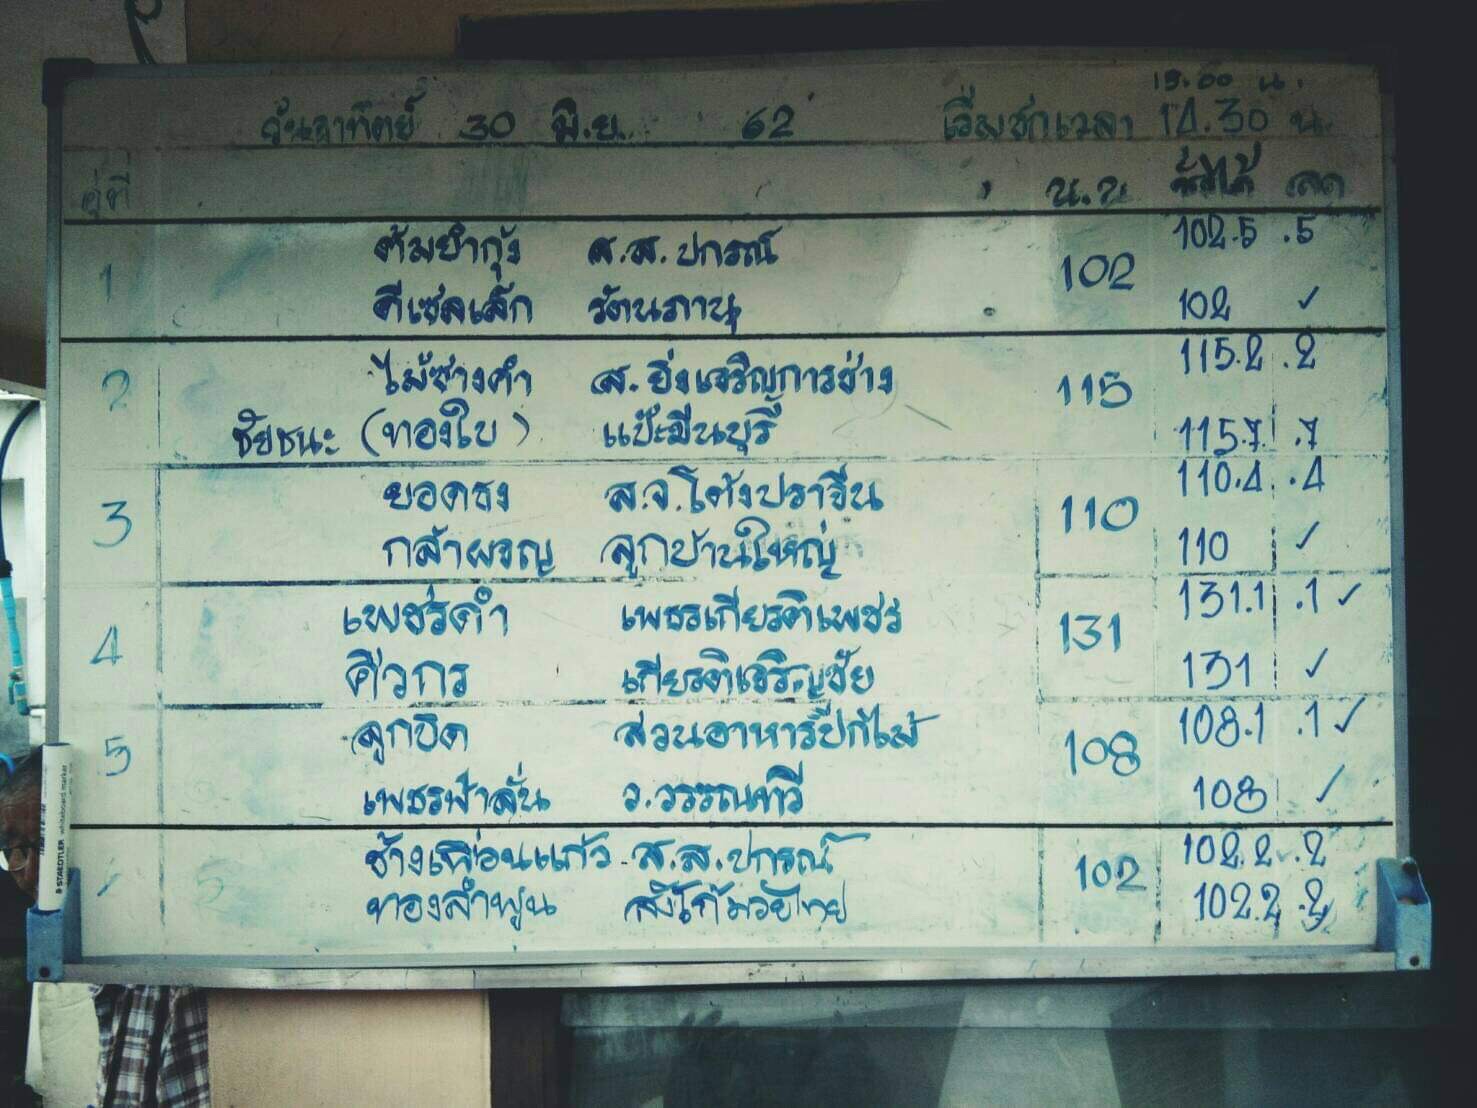 15.00 น.
วันอาทิตย์ 30 มิ.ย. 62 เริ่มชกเวลา 14.30 น.
คู่ที่ น.น ชั่งได้ ลด
1 ต้มยำกุ้ง ส.ส.ปกรณ์ 102 102.5 .5
ดีเซลเล็ก รัตนภานุ 102 ✓
2 ไม้ซางคำ ส.ยิ่งเจริญการช่าง 115 115.2 .2
ชัยชนะ (ทองใบ) แป๊ะมีนบุรี 115.7 .7
3 ยอดธง ส.จ.โต้งปราจีน 110 110.4 .4
กล้าผจญ ลูกบ้านใหญ่ 110 ✓
4 เพชรดำ เพชรเกียรติเพชร 131 131.1 .1 ✓
ศิวกร เกียรติเจริญชัย 131 ✓
5 ลูกปัด สวนอาหารปีกไม้ 108 108.1 .1 ✓
เพชรฟ้าลั่น ว.วรรณทวี 108 ✓
ช้างเผือนแก้ว ส.ส.ปกรณ์ 102 102.2 .2
ทองลำพูน มวยไทย 102.2 .2
STAEDTLER whiteboard marker